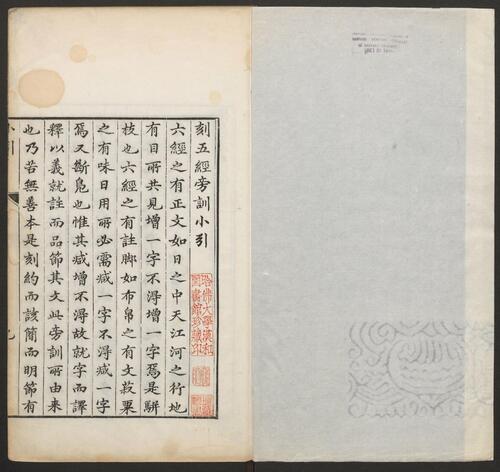 刻五經旁訓小引
六經之有正文如日之中天江河之行地
有目所共見增一字不得增一字焉是駢
枝也六經之有註脚如布帛之有文菽粟
之有味日用所必需減一字不得減一字
焉又斷鳧也惟其減增不得故就字而譯
釋以義就註而品節其文此旁訓所由來
也乃若無善本是刻約而該簡而明節有
哈佛大學漢和
圖書館珍藏印